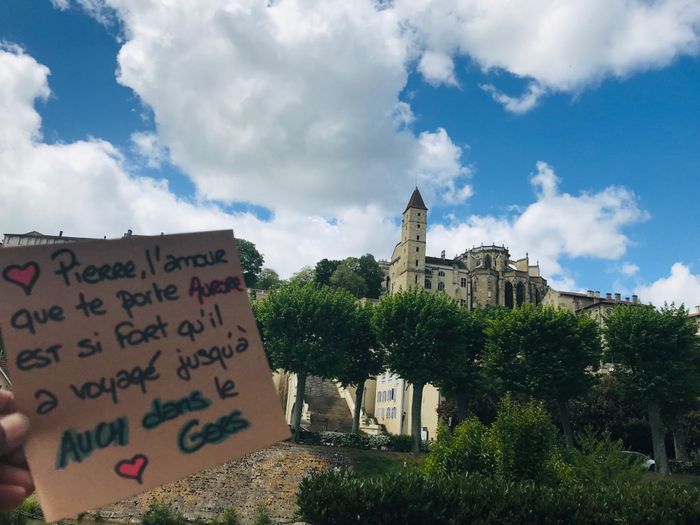 Pierre, l'amour
que te porte Aurore
est si fort qu'il
a voyagé jusqu'à
AUCH dans le
Gers